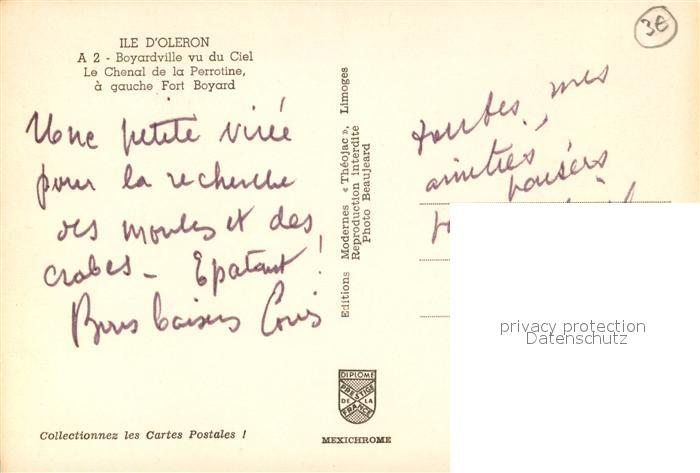 3€
ILE D'OLERON
A 2 - Boyardville vu du Ciel
Le Chenal de la Perrotine,
à gauche Fort Boyard
Une petite virée
pour la recherche
des moules et des
crabes - Epatant !
Bons baisers
Editions Modernes « Théojac », Limoges
Reproduction interdite
Photo Beaujeard
toutes, mes
amitiés
DIPLOME
PRESTIGE
DE LA
FRANCE
MEXICHROME
Collectionnez les Cartes Postales !
privacy protection
Datenschutz